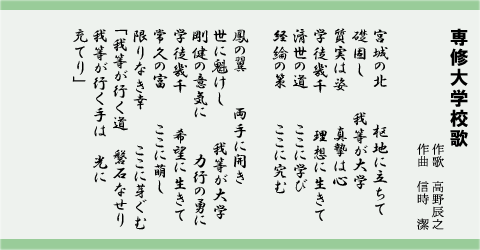 専修大学校歌
作歌 高野辰之
作曲 信時 潔
宮城の北 枢地に立ちて
礎固し 我等が大学
質実は姿 真摯は心
学徒幾千 理想に生きて
済世の道 ここに学び
経綸の策 ここに究む
鳳の翼 両手に開き
世に魁けし 我等が大学
剛健の意気に 力行の勇に
学徒幾千 希望に生きて
常久の富 ここに萌し
限りなき幸 ここに芽ぐむ
「我等が行く道 磐石なせり
我等が行く手は 光に
充てり」